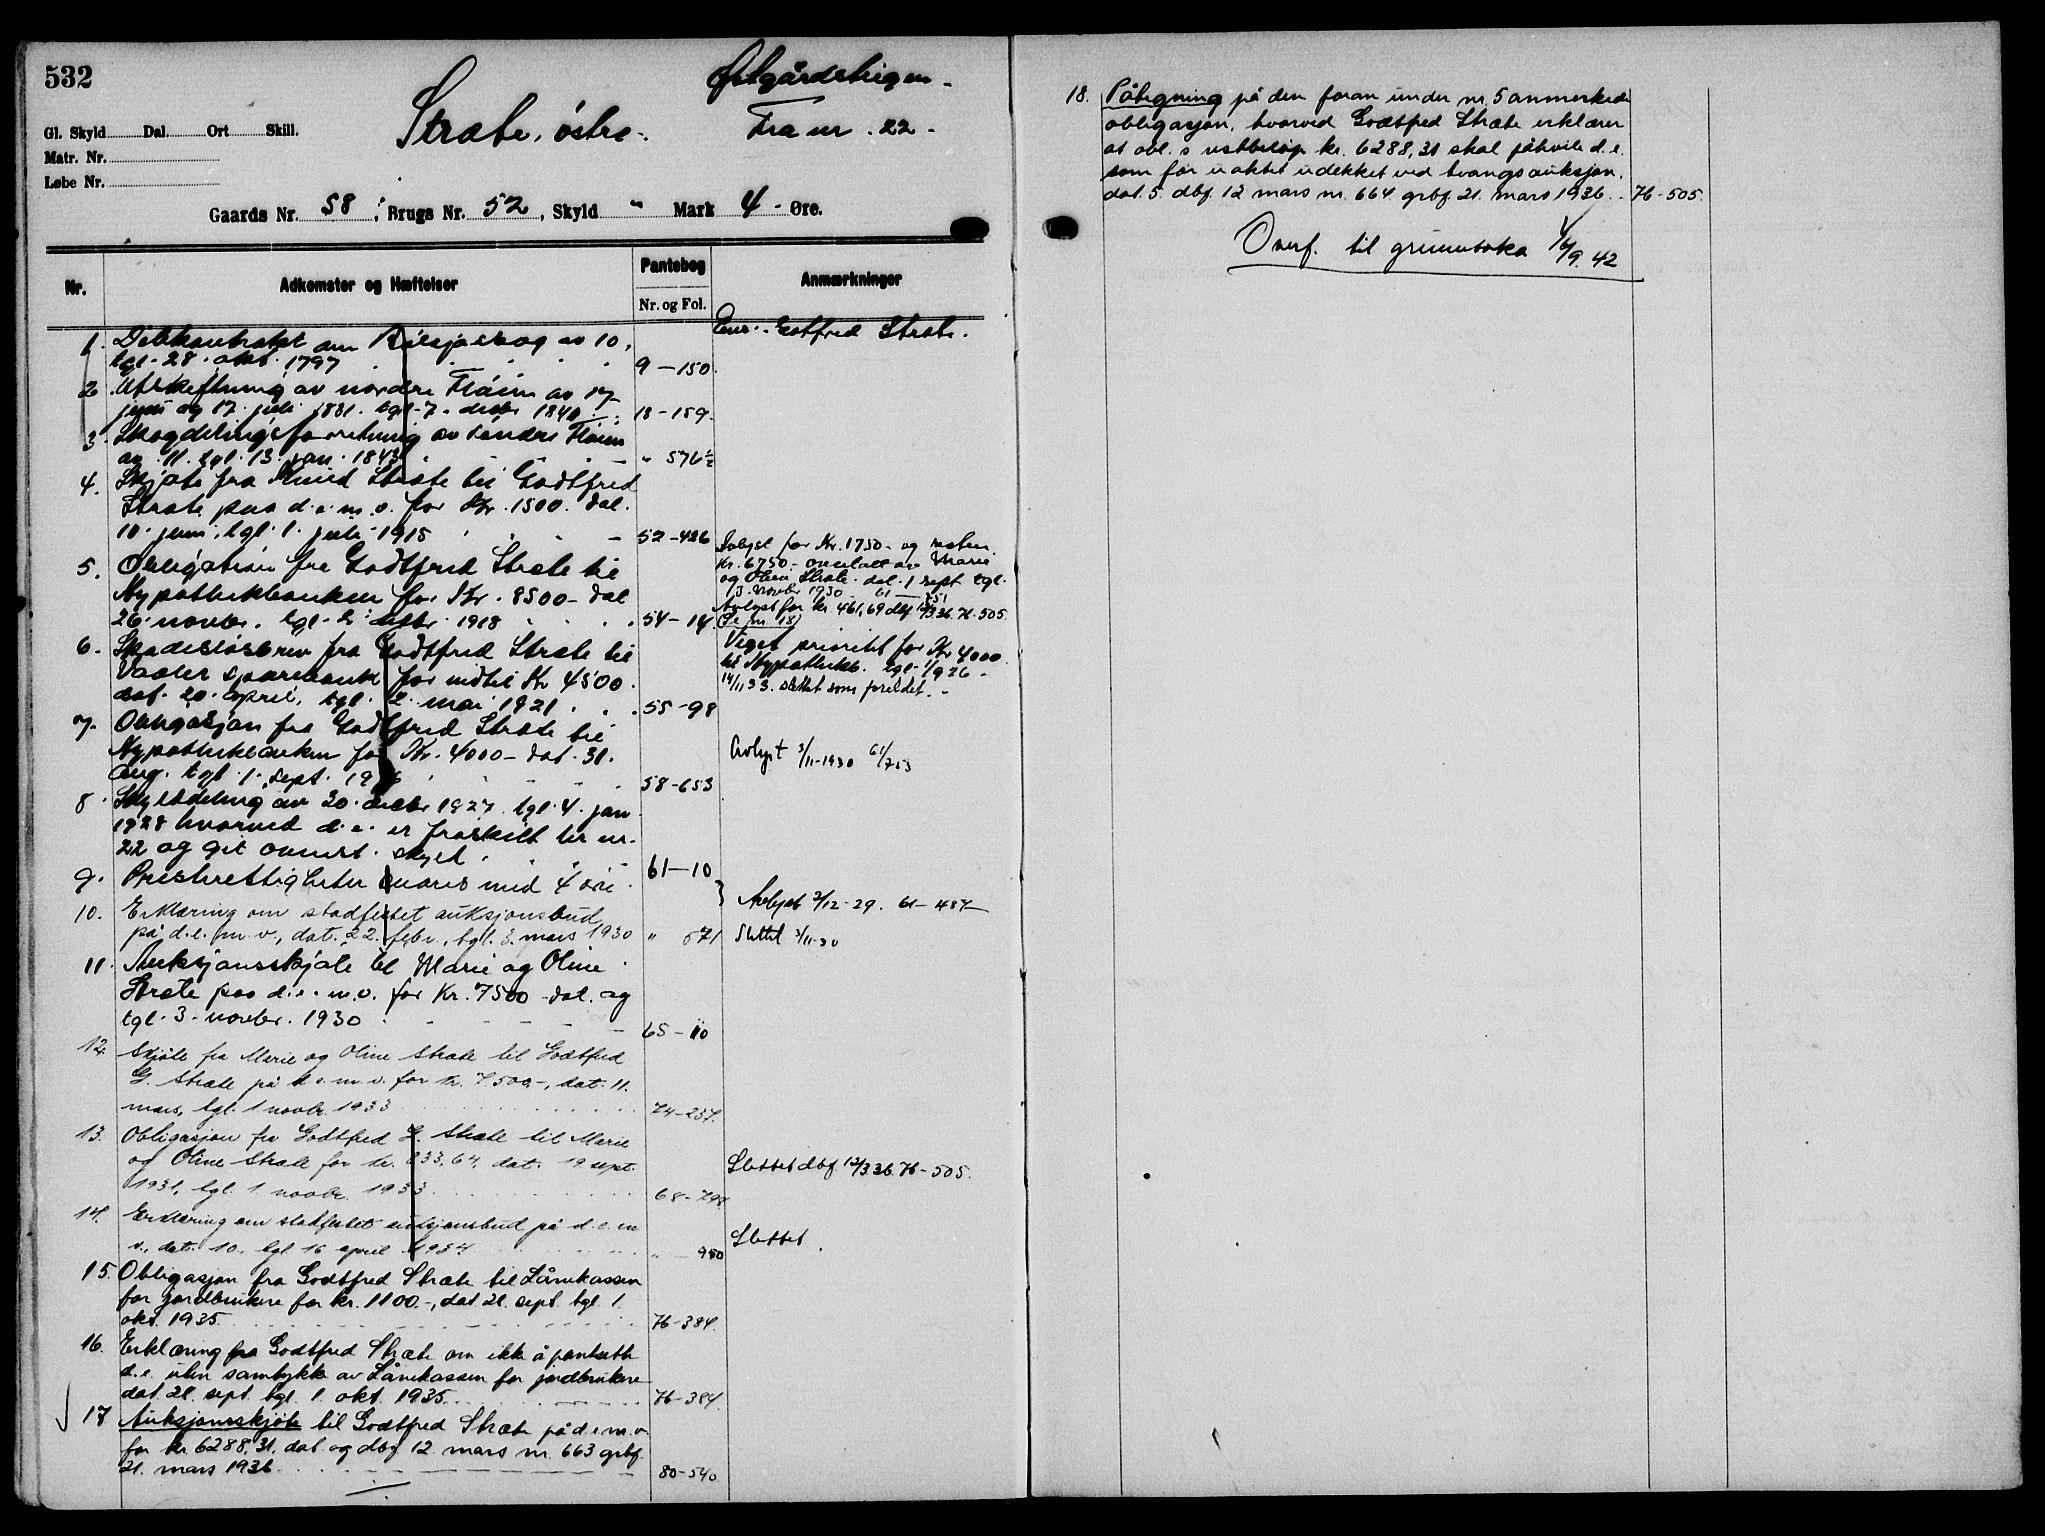 532
Østgårdstrøen -
Stræte, østre -
Fra nr. 22 -
Gl. Skyld Dal. Ort Skill.
Matr. Nr.
Løbe Nr.
Gaards Nr. 58 ; Brugs Nr. 52 , Skyld " Mark 4 - Øre.
Nr. Adkomster og Hæftelser Pantebog Nr. og Fol. Anmærkninger
Eier. Gotfred Stræte.
1. Delekontrakt om skog av 10,
tgl. 28. okt. 1797 9 - 150.
2. Utskiftning av nordre Flåen av 17
juni og 17. juli 1831. tgl. 7. decbr 1840 13 - 159.
3. Skogdelingsforretning av søndre Flåen
av 11. tgl. 13. jan. 1843 " 576½
4. Skjøte fra Amund Stræte til Godtfred
Stræte paa d.e.m.v. for Kr. 1500. dat.
10. juni, tgl. 1. juli 1915 52 - 426
5. Obligation fra Godtfred Stræte til
Hypothekbanken for Kr. 8500 - dat
26. novbr. tgl. 2. decbr. 1918 54 - 14
Avlyst for Kr. 1750 - og resten
Kr. 6750 - overdratt av Marie
og Oline Stræte. dat. 1 sept tgl.
3 novbr 1930 61 - 751
Avlyst for kr. 461,69 dbf. 12/3 36. 76 - 505.
(Se nr. 18)
6. Skadesløsbrev fra Godtfred Stræte til
Vaaler sparebank for indtil Kr 4500.
dat. 20. april, tgl. 2. mai 1921 55 - 98
Viget prioritet for Kr 4000
til Hypothekb. tgl. 1/9 26 -
14/11 33. slettet som foreldet. -
7. Obligasjon fra Godtfred Stræte til
Hypothekbanken for Kr. 4000 - dat. 31.
aug. tgl. 1. sept. 1926 58 - 653
Avlyst 3/11-1930 61/753
8. Skylddeling av 30. decbr 1927, tgl. 4. jan
1928 hvorved d.e. er fraskilt br. nr.
22 og git ovenst. skyld. 61 - 10
9. Presterettigheter svares med 4 øre.
10. Erklæring om stadfestet auksjonsbud
på d.e. m.v., dat. 22. febr., tgl. 3. mars 1930 " 571
Avlyst 3/12-29. 61 - 487
Slettet 3/11-30
11. Auksjonsskjøte til Marie og Oline
Stræte paa d.e.m.v. for Kr. 7500 - dat. og
tgl. 3. novbr. 1930 65 - 110
12. Skjøte fra Marie og Oline Stræte til Godtfred
G. Stræte på d.e.m.v. for kr. 7500,-, dat. 11.
mars, tgl. 1 novbr. 1933 74 - 257.
13. Obligasjon fra Godtfred G. Stræte til Marie
og Oline Stræte for kr. 833,64, dat. 19 sept.
1931, tgl. 1 novbr. 1933 68 - 798
Slettet dbf. 12/3 36. 76 - 505.
14. Erklæring om stadfestet auksjonsbud på d.e.m.
v., dat. 10, tgl. 16 april 1934 " 950
Slettet.
15. Obligasjon fra Godtfred Stræte til Lånekassen
for jordbrukere for kr. 1100.-, dat. 21. sept. tgl. 1.
okt. 1935. 76 - 384.
16. Erklæring fra Godtfred Stræte om ikke å pantsette
d.e. uten samtykke av Lånekassen for jordbrukere
dat. 21. sept. tgl. 1. okt. 1935. 76 - 384.
17 Auksjonsskjøte til Godtfred Stræte på d.e.m.v.
for kr. 6288,31. dat. og dbf. 12 mars nr. 663 grbf.
21. mars 1936. 80 - 540.
18. Påtegning på den foran under nr. 5 anmerkede
obligasjon, hvorved Godtfred Stræte erklærer
at obl.s restbeløp kr. 6288,31 skal påhvile d.e.
som før uaktet udekket ved tvangsauksjon,
dat. 5. dbf. 12 mars nr. 664 grbf. 21. mars 1936. 76 - 505.
Overf. til grunnboka 1/9. 42